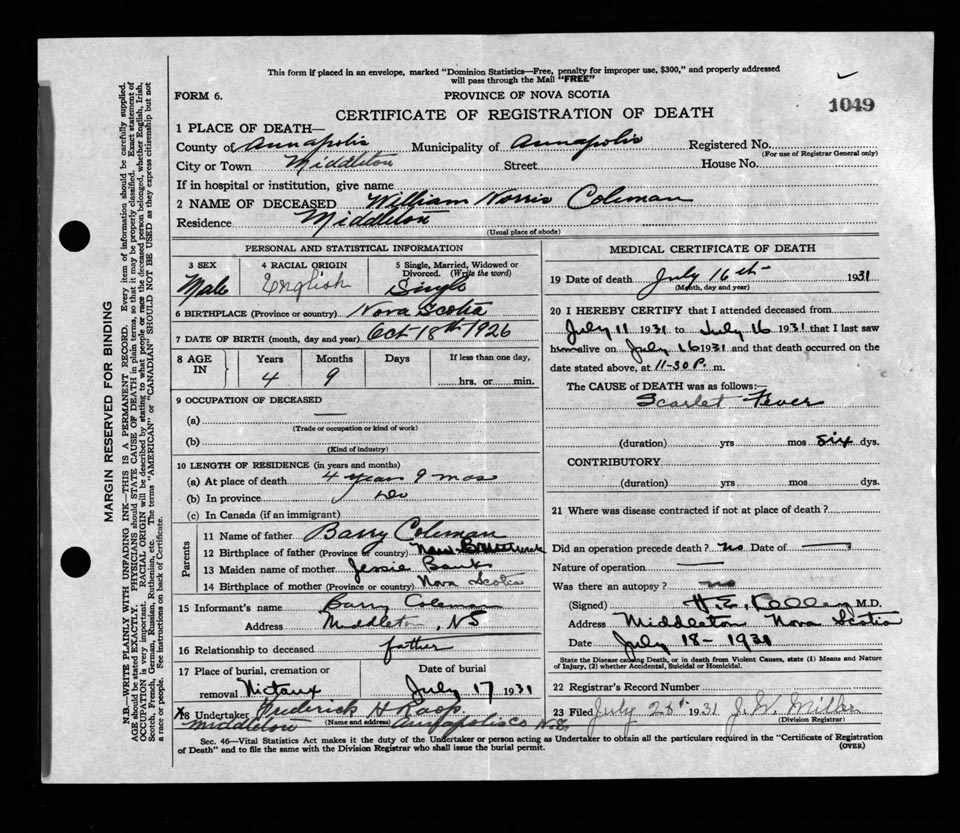 This form if placed in an envelope, marked "Dominion Statistics—Free, penalty for improper use, $300," and properly addressed
will pass through the Mail "FREE"
FORM 6.
PROVINCE OF NOVA SCOTIA
1049
CERTIFICATE OF REGISTRATION OF DEATH
1 PLACE OF DEATH—
County of Annapolis Municipality of Annapolis Registered No.
(For use of Registrar General only)
City or Town Middleton Street House No.
If in hospital or institution, give name
2 NAME OF DECEASED William Norris Coleman
Residence Middleton
(Usual place of abode)
PERSONAL AND STATISTICAL INFORMATION
3 SEX
Male
4 RACIAL ORIGIN
English
5 Single, Married, Widowed or
Divorced. (Write the word)
Single
6 BIRTHPLACE (Province or country) Nova Scotia
7 DATE OF BIRTH (month, day and year) Oct 18th 1926
8 AGE
IN
Years
4
Months
9
Days
If less than one day,
hrs. or min.
9 OCCUPATION OF DECEASED
(a) —
(Trade or occupation or kind of work)
(b)
(Kind of industry)
10 LENGTH OF RESIDENCE (in years and months)
(a) At place of death 4 years 9 mos
(b) In province do
(c) In Canada (if an immigrant)
Parents
11 Name of father Barry Coleman
12 Birthplace of father (Province or country) New Brunswick
13 Maiden name of mother Jessie Banks
14 Birthplace of mother (Province or country) Nova Scotia
15 Informant's name Barry Coleman
Address Middleton, NS
16 Relationship to deceased father
17 Place of burial, cremation or
removal Nictaux
Date of burial
July 17 1931
18 Undertaker Frederick H Roop
(Name and address)
Middleton Annapolis Co N.S.
MEDICAL CERTIFICATE OF DEATH
19 Date of death July 16th 1931
(Month, day and year)
20 I HEREBY CERTIFY that I attended deceased from
July 11 1931 to July 16 1931 that I last saw
him alive on July 16 1931 and that death occurred on the
date stated above, at 11-30 P. m.
The CAUSE of DEATH was as follows:—
Scarlet Fever
(duration) yrs mos six dys.
CONTRIBUTORY
(duration) yrs mos dys.
21 Where was disease contracted if not at place of death?
Did an operation precede death? no Date of —
Nature of operation —
Was there an autopsy? no
(Signed) H. E. M.D.
Address Middleton Nova Scotia
Date July 18 - 1931
State the Disease causing Death, or in death from Violent Causes, state (1) Means and Nature
of Injury, (2) whether Accidental, Suicidal or Homicidal.
22 Registrar's Record Number
23 Filed July 1931 J. W. Miller
(Division Registrar)
Sec. 46—Vital Statistics Act makes it the duty of the Undertaker or person acting as Undertaker to obtain all the particulars required in the "Certificate of Registration
of Death" and to file the same with the Division Registrar who shall issue the burial permit.
(OVER)
MARGIN RESERVED FOR BINDING
N.B.—WRITE PLAINLY WITH UNFADING INK—THIS IS A PERMANENT RECORD. Every item of information should be carefully supplied.
AGE should be stated EXACTLY. PHYSICIANS should STATE CAUSE OF DEATH in plain terms, so that it may be properly classified. Exact statement of
OCCUPATION is very important. RACIAL ORIGIN will be described by stating to what people or race the deceased person belonged, whether English, Irish,
Scotch, French, German, Russian, Ruthenian, etc. The terms "AMERICAN" or "CANADIAN" SHOULD NOT BE USED as they express citizenship but not
a race or people. See instructions on back of Certificate.